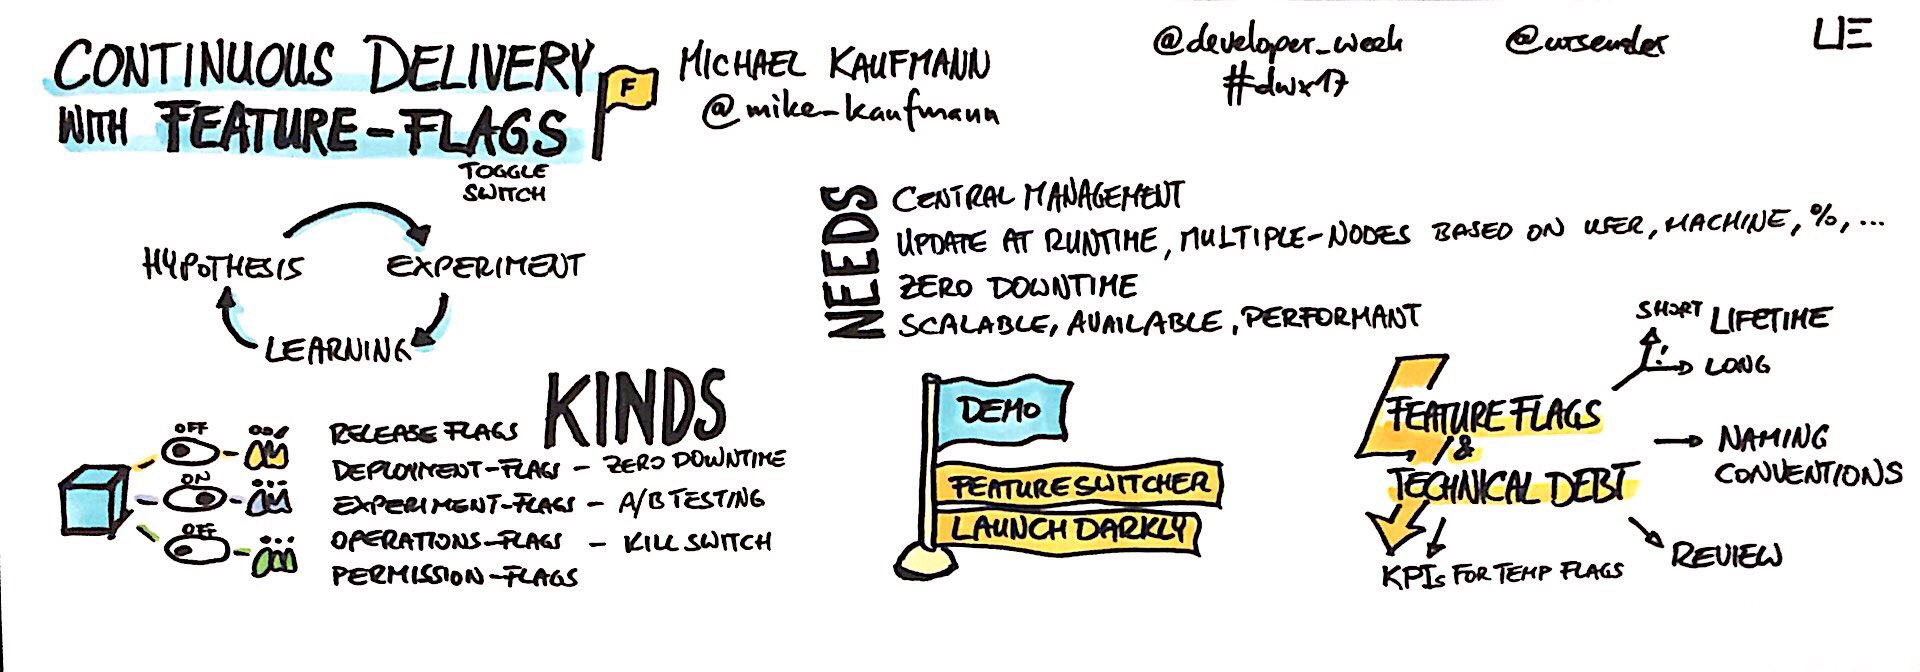 CONTINUOUS DELIVERY
WITH FEATURE-FLAGS
TOGGLE
SWITCH
F
MICHAEL KAUFMANN
@mike_kaufmann
@developer_week
#dwx17
@ursender
HYPOTHESIS
EXPERIMENT
LEARNING
NEEDS
CENTRAL MANAGEMENT
UPDATE AT RUNTIME, MULTIPLE-NODES BASED ON USER, MACHINE, %, ...
ZERO DOWNTIME
SCALABLE, AVAILABLE, PERFORMANT
KINDS
OFF
ON
OFF
RELEASE FLAGS
DEPLOYMENT-FLAGS - ZERO DOWNTIME
EXPERIMENT-FLAGS - A/B TESTING
OPERATIONS-FLAGS - KILL SWITCH
PERMISSION-FLAGS
DEMO
FEATURESWITCHER
LAUNCH DARKLY
FEATURE FLAGS
&
TECHNICAL DEBT
SHORT LIFETIME
! LONG
NAMING
CONVENTIONS
REVIEW
KPIs FOR TEMP FLAGS